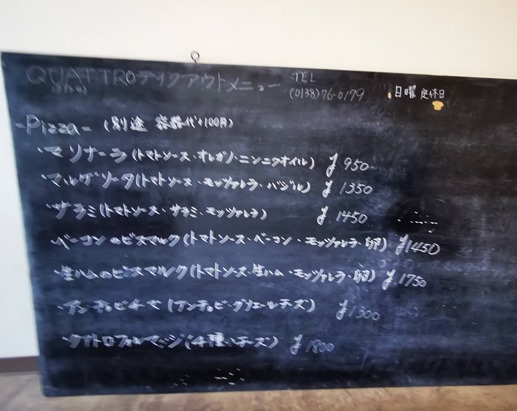 QUATTROテイクアウトメニュー TEL
(0138)76-0179 日曜 定休日
-Pizza- (別途 容器代+100円)
・マリナーラ(トマトソース・オレガノ・ニンニクオイル) ¥950
・マルゲリータ(トマトソース・モッツァレラ・バジル) ¥1350
・サラミ(トマトソース・サラミ・モッツァレラ) ¥1450
・ベーコンのビスマルク(トマトソース・ベーコン・モッツァレラ・卵) ¥1450
・生ハムのビスマルク(トマトソース・生ハム・モッツァレラ・卵) ¥1750
・アンチョビチーズ(アンチョビ・グリエールチーズ) ¥1300
・クワトロフォルマッジ(4種のチーズ) ¥1800